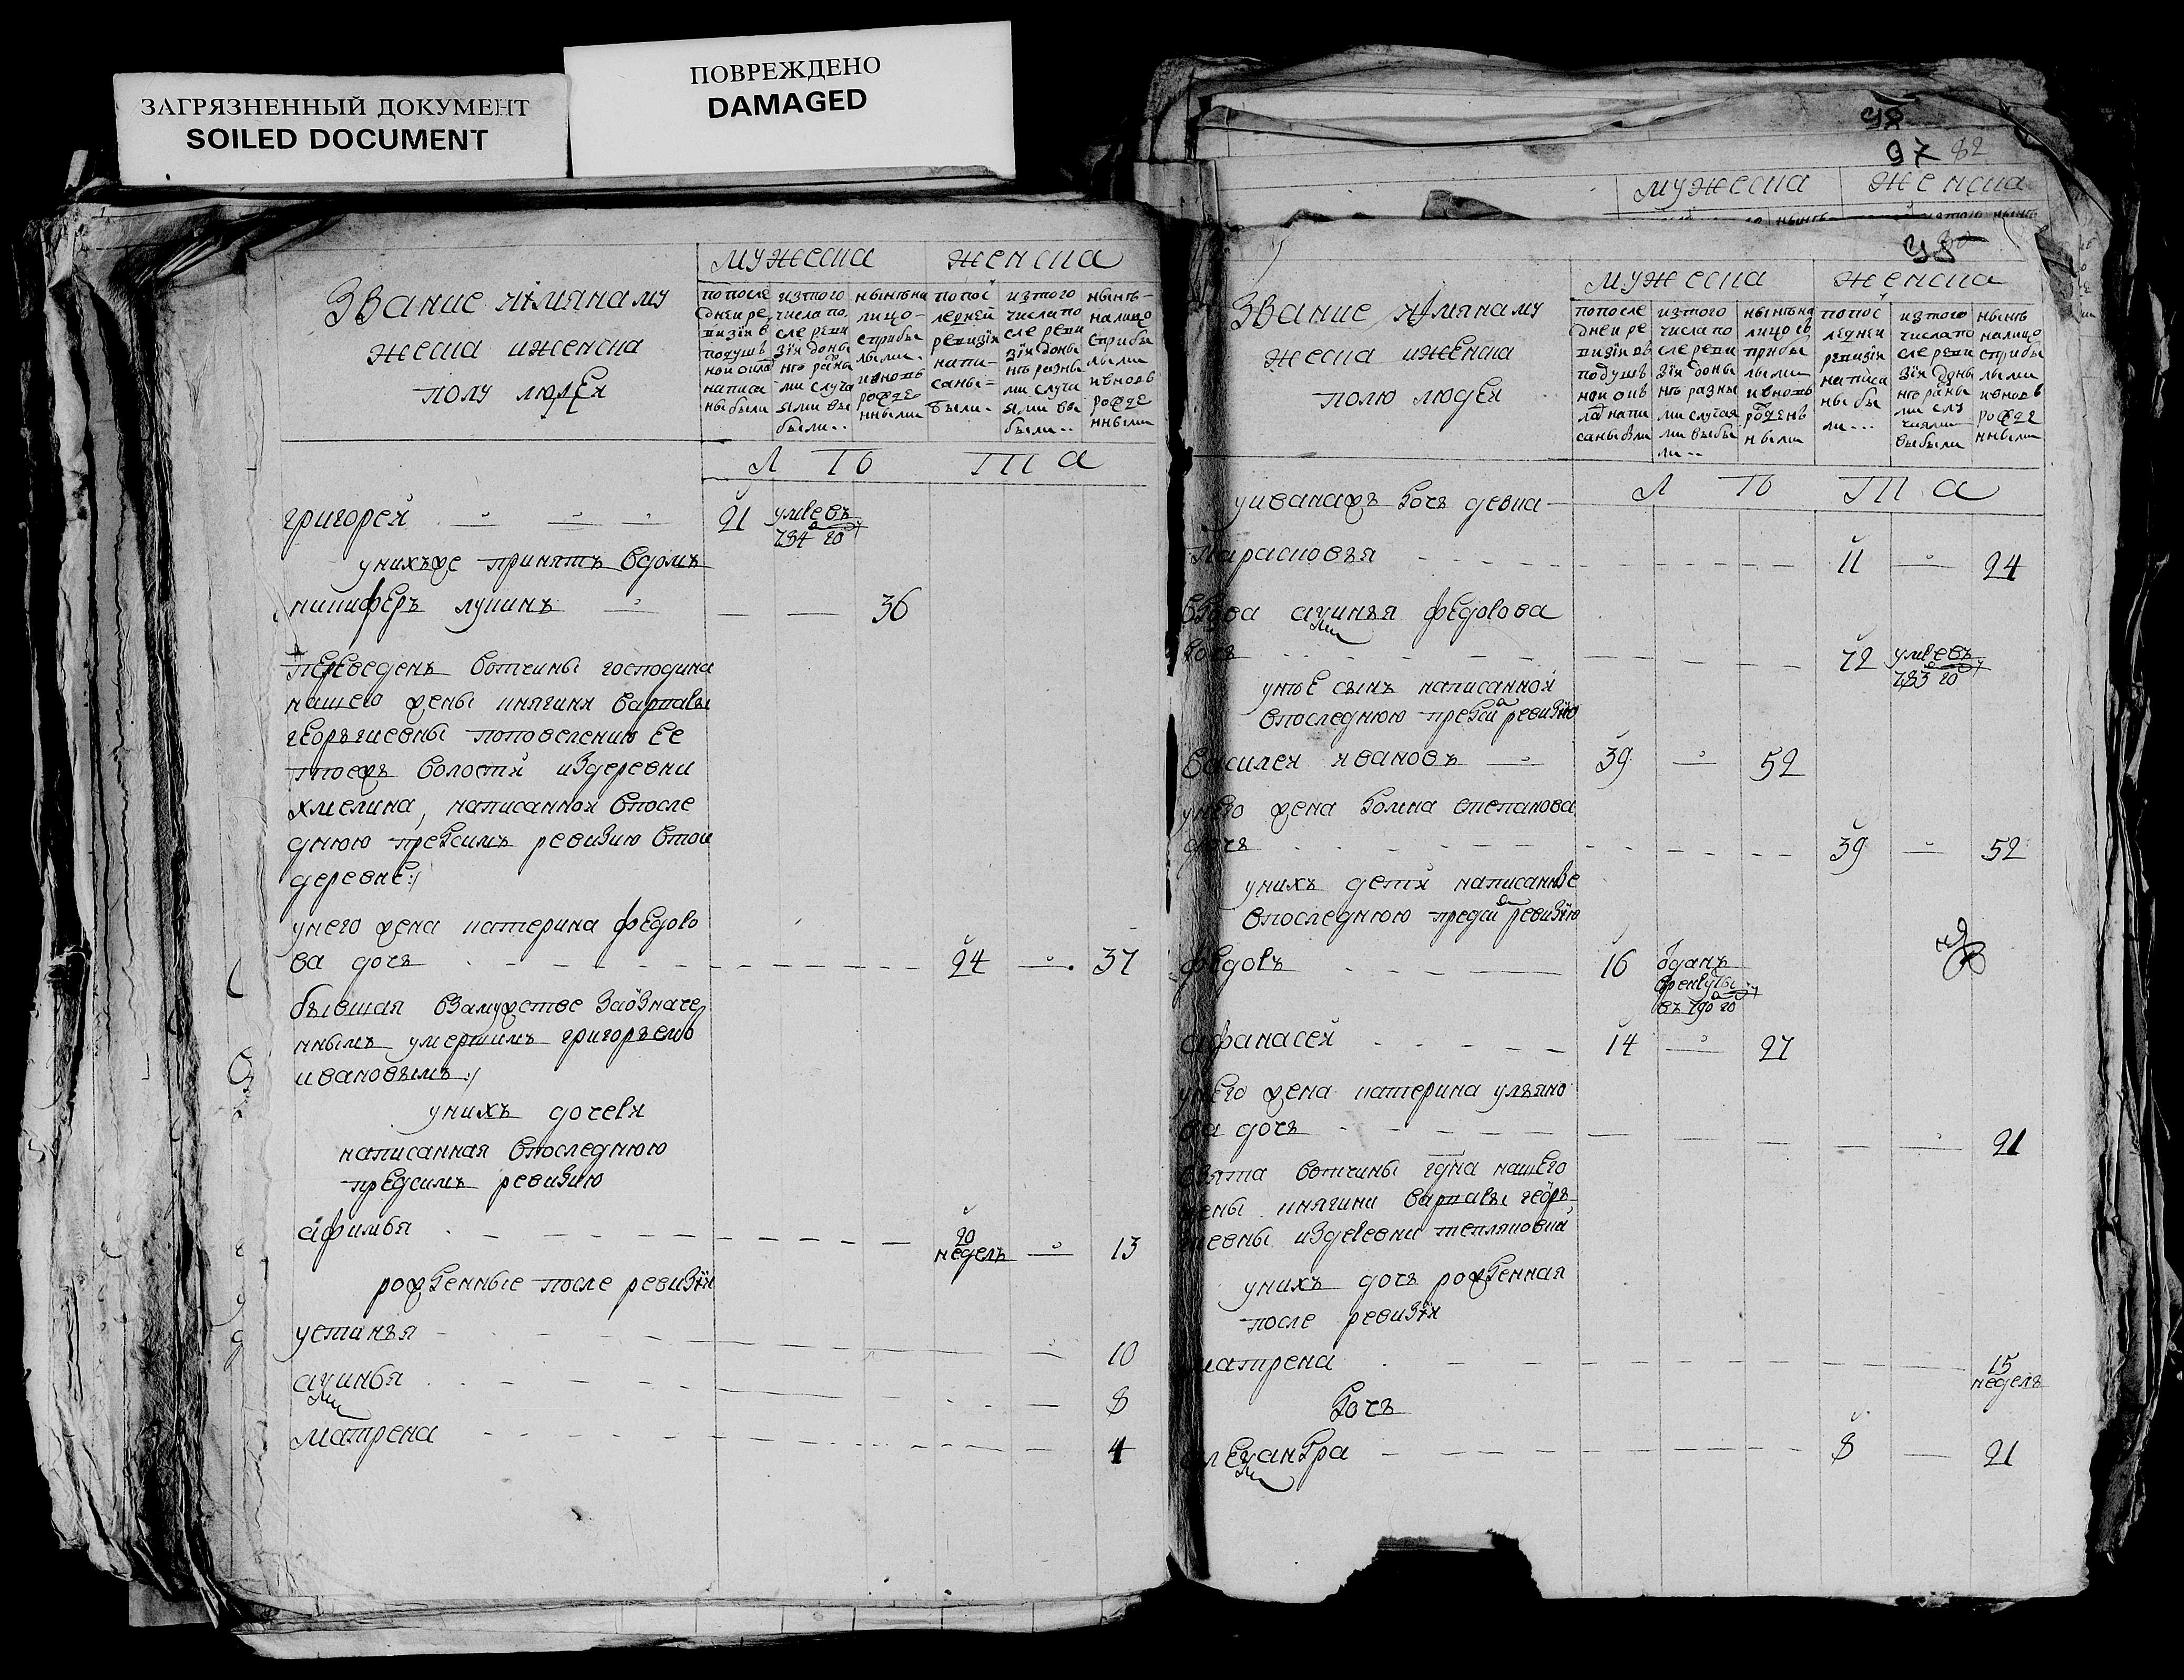 ЗАГРЯЗНЕННЫЙ ДОКУМЕНТ
SOILED DOCUMENT
ПОВРЕЖДЕНО
DAMAGED
мужеска женска
Звание ıѓмянаму
жеска иженска
полу людей
попосле
днеи ре
визїи в
подуш
нои окла
написа
ны были
изтого
числа по
сле реви
зїи доны
нѣ разны
ми случа
ями вы
были
нынѣна
лицо
сприбы
лыми
ивновь
рожде
нными
попос
ледней
ревизїи
напи-
саны-
были
изтого
числа по
сле реви
зїи доны
нѣ разны
ми случа
ями вы
были
нынѣ-
налицо
сприбы
лыми
ивновь
рожде
нными
Л Ѣ Т А
григорей 21 умревъ 784 го
унихъже принятъ вдомъ
никиферъ лукинъ 36
переведенъ вотчины господина
нашего жены княгини варвары
георъгиевны поповелению ее
тоежъ волости издеревни
хмелина, написанной впосле
днюю предсимъ ревизию втои
деревне:/
унего жена катерина федоро
ва дочь 24 37
бывшая взамужстве заозначе
ннымъ умершимъ григорьемъ
ивановымъ:/
унихъ дочери
написанная впоследнюю
предсимъ ревизию
афимья 20 недель 13
рожденные после ревизїи
устинья 10
аксинья 8
матрена 4
98
97 82
мужеска женска
95
мужеска женска
Звание ıѓмянаму
жеска иженска
полю людей
попосле
днеи ре
визїи въ
подуш
нои ок
лад напи
саны были
изтого
числа по
сле реви
зїи доны
нѣ разны
ми случая
ми выбы
ли
нынѣна
лицо съ
прибы
лыми
ивновь
рожден
ными
попос
ледней
ревизїи
написа
ны бы
ли
изтого
числа по
сле реви
зїи доны
нѣ разны
ми слу
чаями
выбыли
нынѣ
налицо
сприбы
лыми
ивновь
рожде
нными
Л Ѣ Т А
уивана жъ дочь девка
парасковья 11 24
вдова аксинья федорова
дочь 72 умревъ 783 го
унее сынъ написанной
впоследнюю предсим ревизїю
василей ивановъ 39 52
унего жена домна степанова
дочь 39 52
унихъ дети написанные
впоследнюю предсим ревизїю
федоръ 16 отданъ врекруты въ 790 го
афанасей 14 27
унего жена катерина ульяно
ва дочь 21
взята вотчины гдна нашего
жены княгини варвары геöръ
гиевны издеревни тепляковки
унихъ дочь рожденная
после ревизїи
матрена 15 недель
дочь
александра 8 21